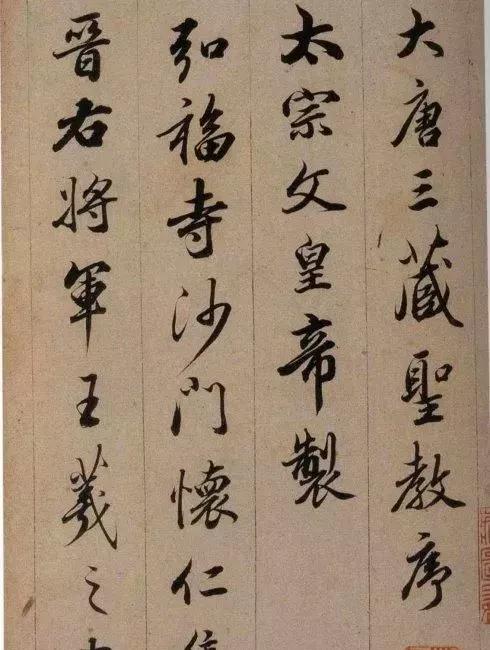 大唐三藏聖教序
太宗文皇帝製
弘福寺沙門懷仁
晉右將軍王羲之